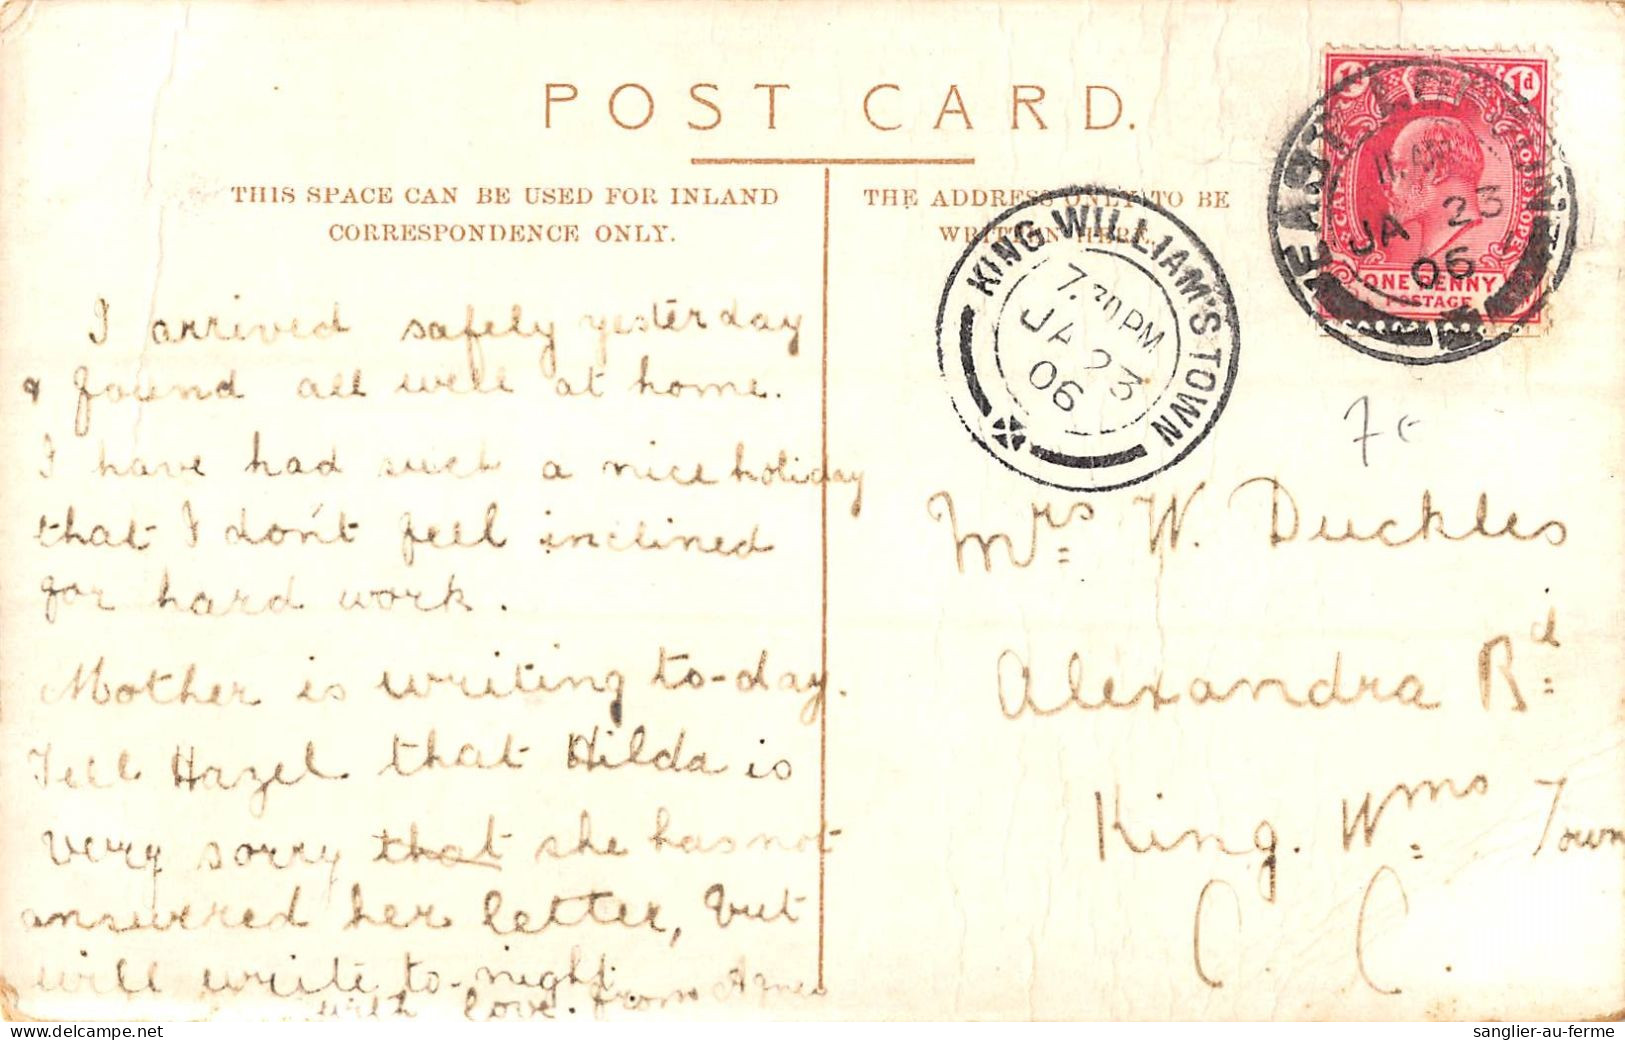 POST CARD.
THIS SPACE CAN BE USED FOR INLAND
CORRESPONDENCE ONLY.
THE ADDRESS ONLY TO BE
WRITTEN HERE.
1d
ONE PENNY
POSTAGE
JA 23
06
KING WILLIAM'S TOWN
7.30 PM
JA 23
06
I arrived safely yesterday
& found all well at home.
I have had such a nice holiday
that I don't feel inclined
for hard work.
Mother is writing to-day.
Tell Hazel that Hilda is
very sorry that she has not
answered her letter, but
will write to-night.
with love from Agnes
7€
Mrs W. Duckles
Alexandra Rd
King. Wms Town
C. C.
delcampe.net
sanglier-au-ferme